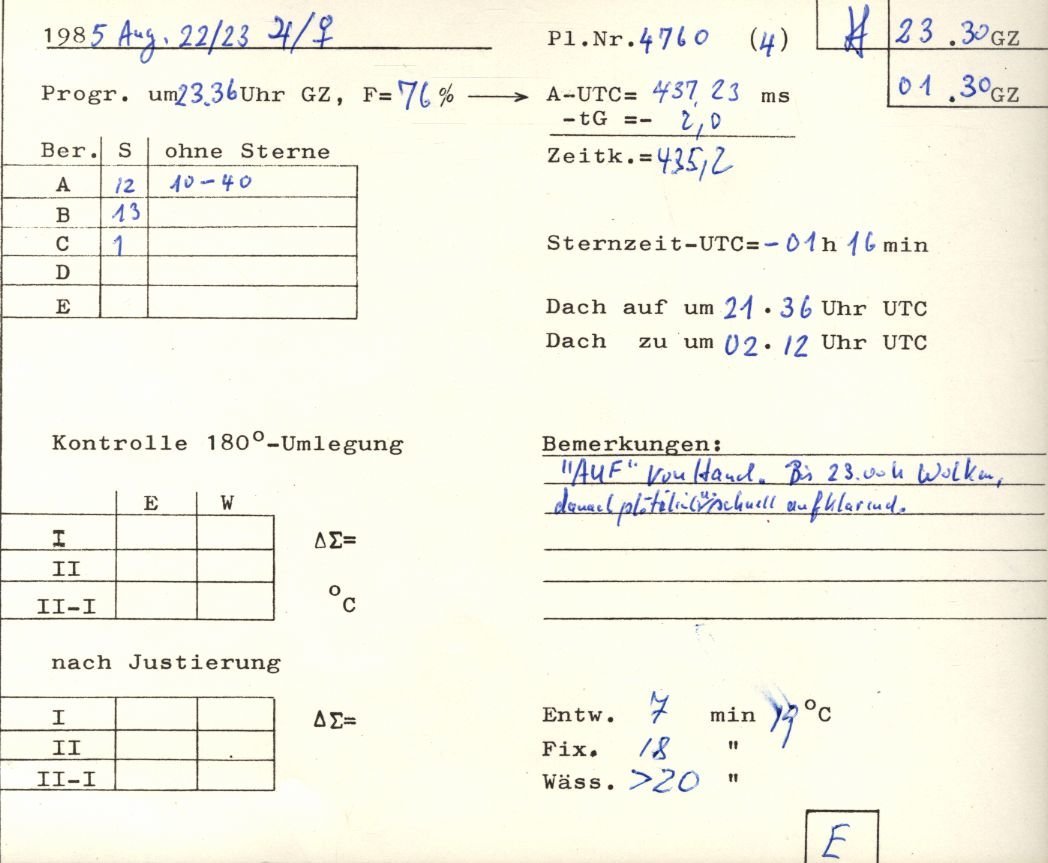 1985 Aug. 22/23 ♃/♀
Pl.Nr. 4760 (4)
23.30 GZ
01.30 GZ
Progr. um 23.36 Uhr GZ, F= 76 % ⟶ A-UTC= 437,23 ms
-tG =- 2,0
Zeitk.= 435,2
Ber. S ohne Sterne
A 12 10-40
B 13
C 1
D
E
Sternzeit-UTC= -01 h 16 min
Dach auf um 21.36 Uhr UTC
Dach zu um 02.12 Uhr UTC
Kontrolle 180°-Umlegung
E W
I ΔΣ=
II
II-I °C
Bemerkungen:
"AUF" von Hand. Bis 23.00h Wolken,
danach plötzlich schnell aufklarend.
nach Justierung
I ΔΣ=
II
II-I
Entw. 7 min 19 °C
Fix. 18 "
Wäss. >20 "
E